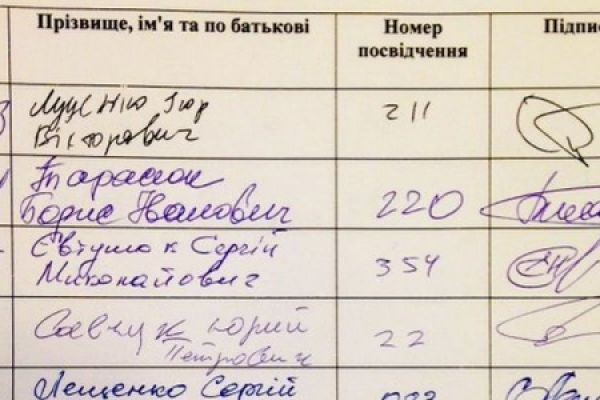 Прізвище, ім'я та по батькові
Номер посвідчення
Підпис
Луценко Ігор
Вікторович
211
Тарасюк
Борис Іванович
220
Євтушок Сергій
Миколайович
354
Савчук Юрій
Петрович
22
Лещенко Сергій